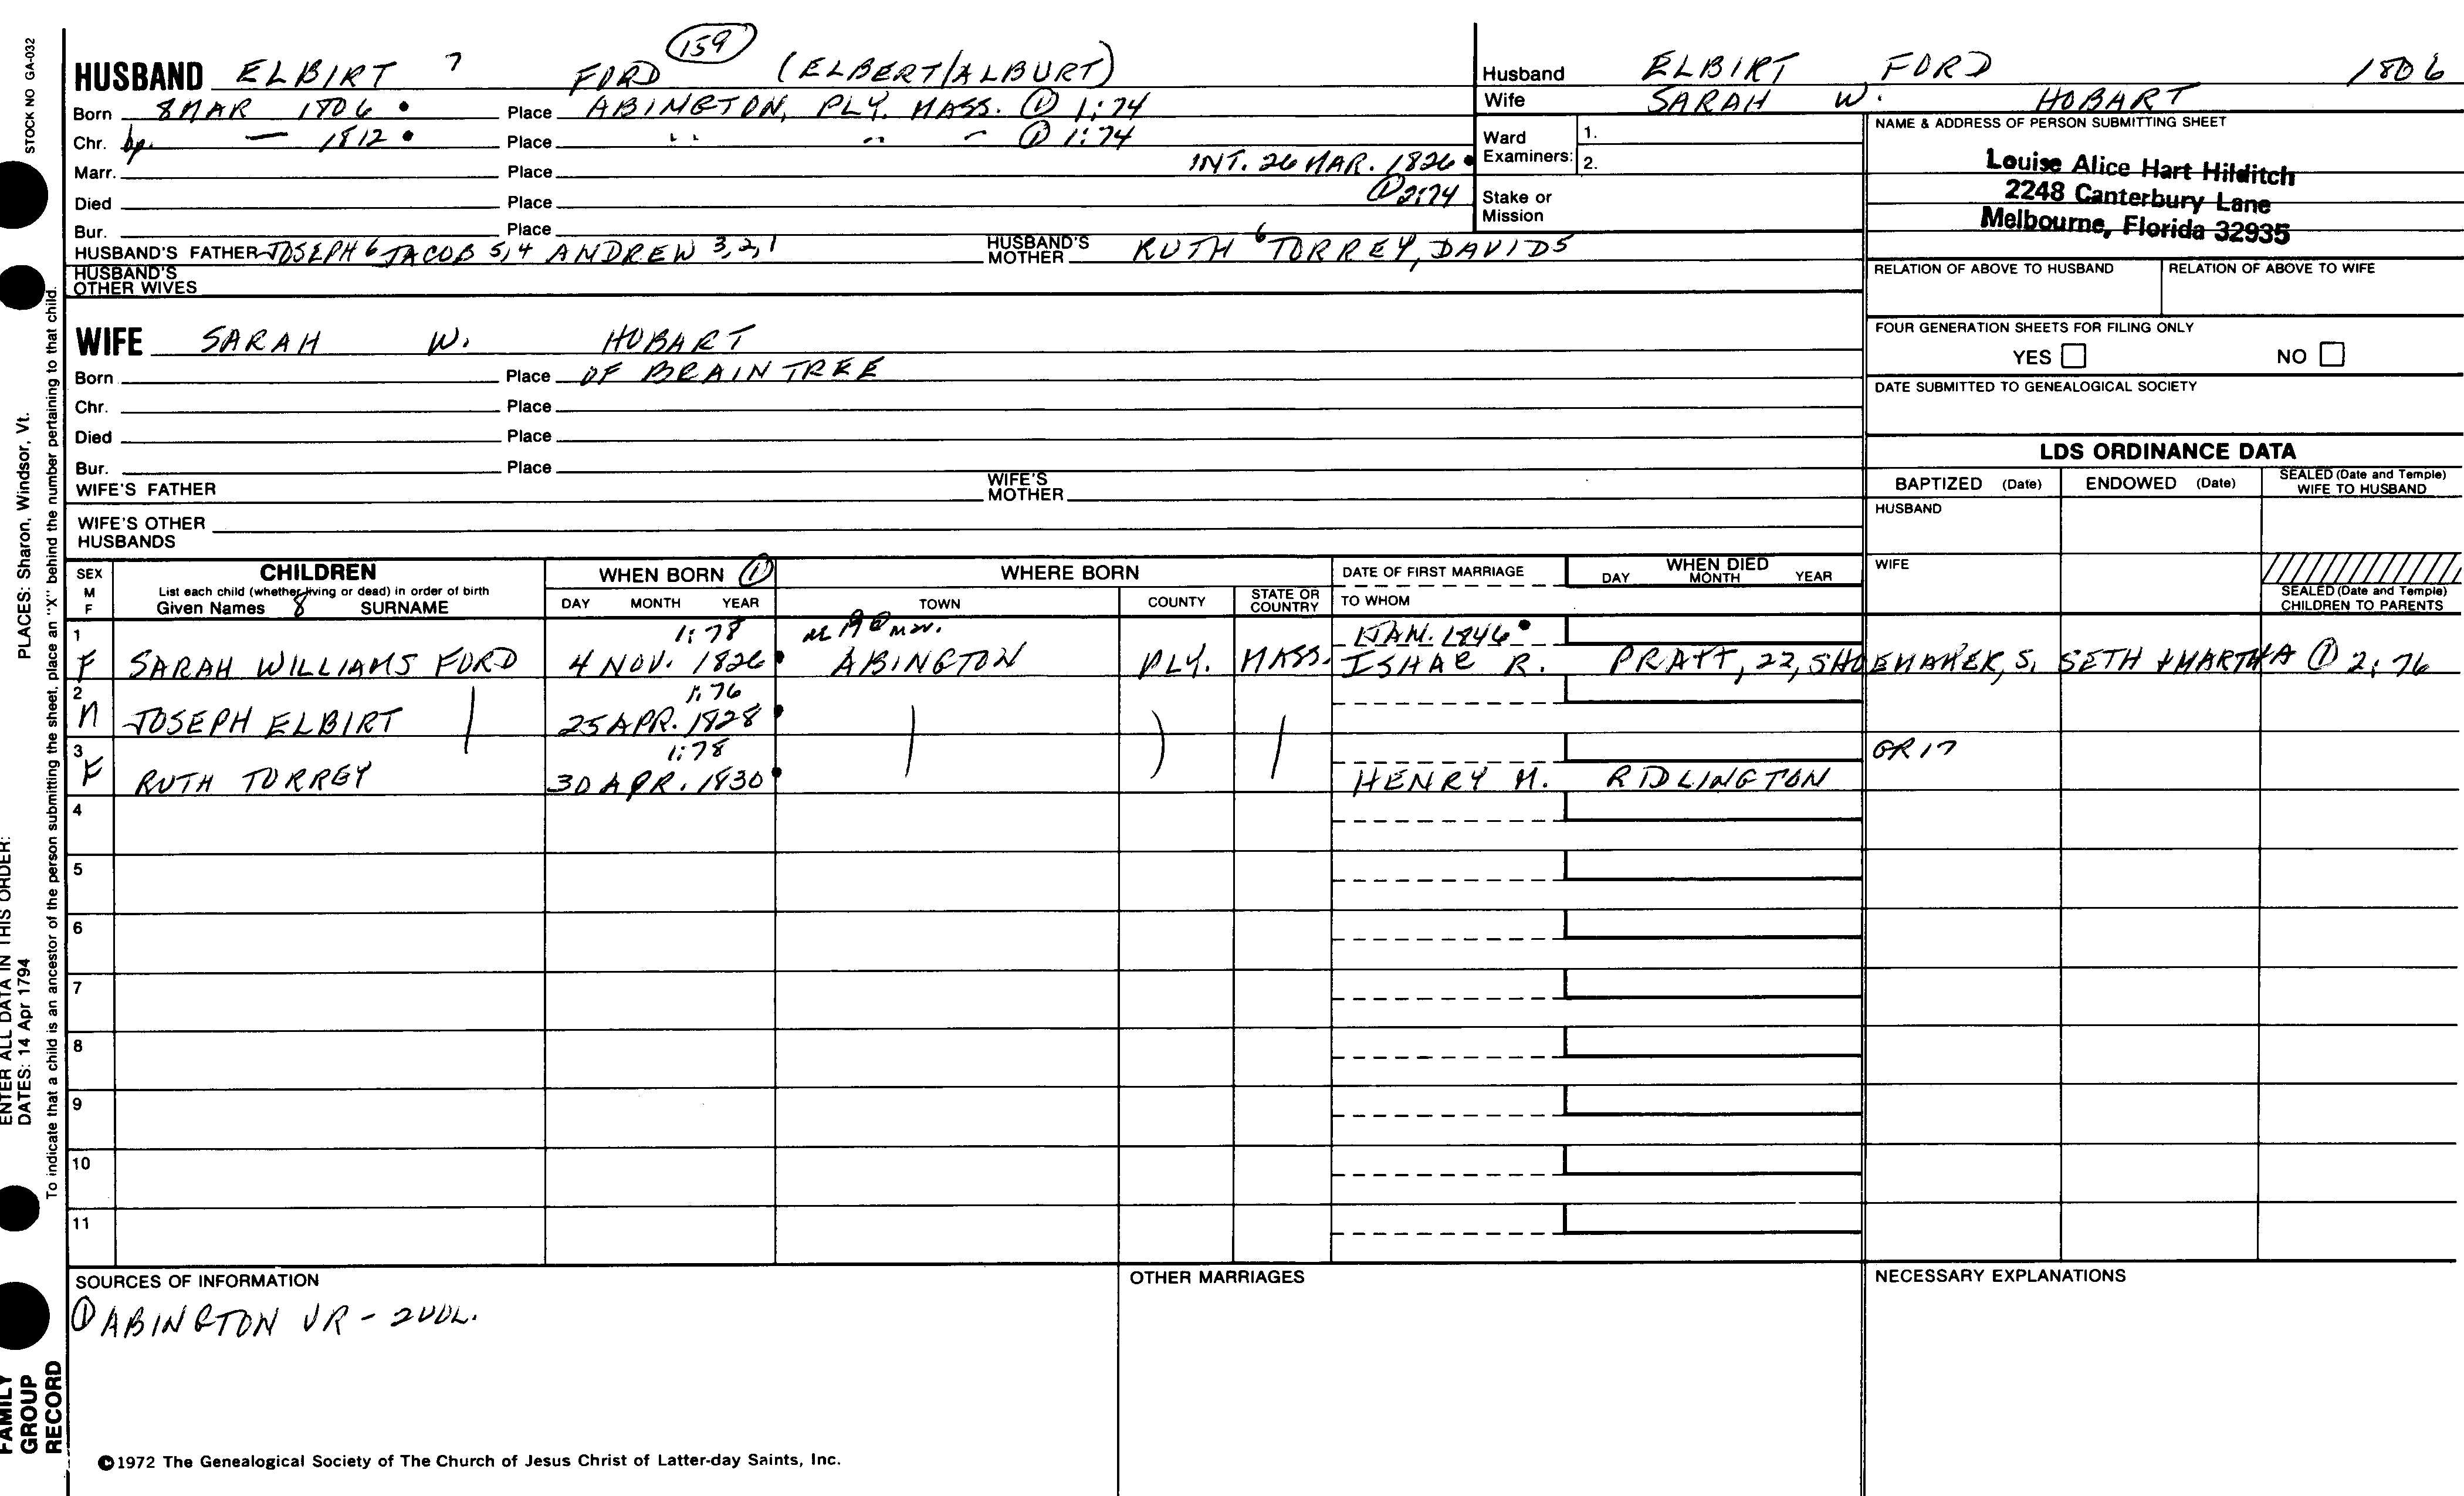 STOCK NO GA-032
159
HUSBAND ELBIRT 7 FORD (ELBERT/ALBURT)
Born 8 MAR 1806 Place ABINGTON, PLY. MASS. ① 1:74
Chr. bp. — 1812 Place " " " ① 1:74
Marr. Place INT. 26 MAR. 1826
Died Place ① 2:74
Bur. Place
HUSBAND'S FATHER JOSEPH 6 JACOB 5,4 ANDREW 3,2,1 HUSBAND'S MOTHER RUTH 6 TORREY, DAVID 5
HUSBAND'S OTHER WIVES
Husband ELBIRT FORD 1806
Wife SARAH W. HOBART
Ward Examiners: 1.
2.
Stake or Mission
NAME & ADDRESS OF PERSON SUBMITTING SHEET
Louise Alice Hart Hilditch
2248 Canterbury Lane
Melbourne, Florida 32935
RELATION OF ABOVE TO HUSBAND RELATION OF ABOVE TO WIFE
FOUR GENERATION SHEETS FOR FILING ONLY
YES NO
DATE SUBMITTED TO GENEALOGICAL SOCIETY
WIFE SARAH W. HOBART
Born Place OF BRAINTREE
Chr. Place
Died Place
Bur. Place
WIFE'S FATHER WIFE'S MOTHER
WIFE'S OTHER HUSBANDS
LDS ORDINANCE DATA
BAPTIZED (Date) ENDOWED (Date) SEALED (Date and Temple) WIFE TO HUSBAND
HUSBAND
WIFE
SEALED (Date and Temple) CHILDREN TO PARENTS
SEX M F
CHILDREN
List each child (whether living or dead) in order of birth
Given Names 8 SURNAME
WHEN BORN ①
DAY MONTH YEAR
WHERE BORN
TOWN COUNTY STATE OR COUNTRY
DATE OF FIRST MARRIAGE
TO WHOM
WHEN DIED
DAY MONTH YEAR
1 1:78 1 JAN. 1846
F SARAH WILLIAMS FORD 4 NOV. 1826 ABINGTON PLY. MASS. ISHAE R. PRATT, 22, SHOEMAKER, S. SETH + MARTHA ① 2:76
2 1:76
M JOSEPH ELBIRT 25 APR. 1828
3 1:78 GR 17
F RUTH TORREY 30 APR. 1830 HENRY M. RIDLINGTON
4
5
6
7
8
9
10
11
SOURCES OF INFORMATION
① ABINGTON VR - 2 VOL.
OTHER MARRIAGES
NECESSARY EXPLANATIONS
©1972 The Genealogical Society of The Church of Jesus Christ of Latter-day Saints, Inc.
PLACES: Sharon, Windsor, Vt.
ENTER ALL DATA IN THIS ORDER:
DATES: 14 Apr 1794
To indicate that a child is an ancestor of the person submitting the sheet, place an "X" behind the number pertaining to that child.
FAMILY
GROUP
RECORD